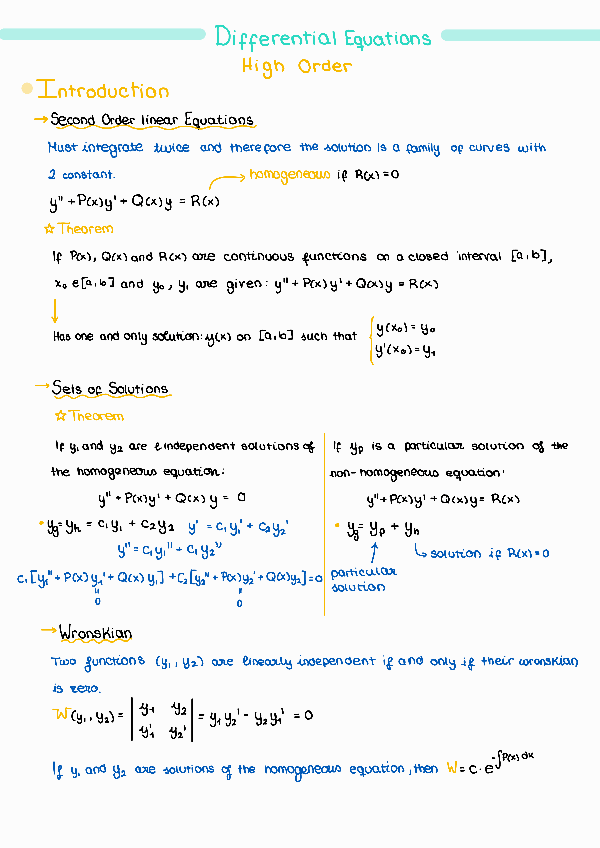 Differential Equations
High Order
Introduction
→ Second Order linear Equations
Must integrate twice and therefore the solution is a family of curves with
2 constant.
homogeneous if R(x)=0
y'' + P(x)y' + Q(x)y = R(x)
☆ Theorem
If P(x), Q(x) and R(x) are continuous functions on a closed interval [a,b],
x₀ e [a,b] and y₀, y₁ are given: y'' + P(x)y' + Q(x)y = R(x)
↓
Has one and only solution: y(x) on [a,b] such that { y(x₀) = y₀
y'(x₀) = y₁
→ Sets of Solutions
☆ Theorem
If y₁ and y₂ are l.independent solutions of
the homogeneous equation:
y'' + P(x)y' + Q(x)y = 0
• yg = yh = c₁y₁ + c₂y₂ y' = c₁y₁' + c₂y₂'
y'' = c₁y₁'' + c₁y₂''
c₁[y₁'' + P(x)y₁' + Q(x)y₁] + c₂[y₂'' + P(x)y₂' + Q(x)y₂] = 0
" "
0 0
If yp is a particular solution of the
non-homogeneous equation:
y'' + P(x)y' + Q(x)y = R(x)
• yg = yp + yh
↑ ↳ solution if R(x)=0
particular
solution
→ Wronskian
Two functions (y₁, y₂) are linearly independent if and only if their wronskian
is zero.
W(y₁, y₂) = | y₁ y₂ | = y₁y₂' - y₂y₁' = 0
| y₁' y₂' |
If y₁ and y₂ are solutions of the homogeneous equation, then W = c · e^(-∫P(x)dx)